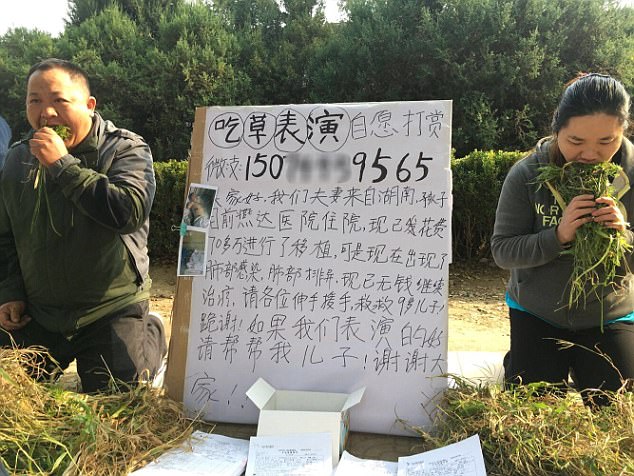 吃草表演自愿打赏
微支:150 9565
大家好,我们夫妻来自湖南,孩子
目前燕达医院住院,现已花费
70多万进行了移植,可是现在出现了
肺部感染,肺部排异,现已无钱继续
治疗,请各位伸手援手,救救9岁儿子,
跪谢!如果我们表演的好
请帮帮我儿子!谢谢大
家!!
NORTH
FACE